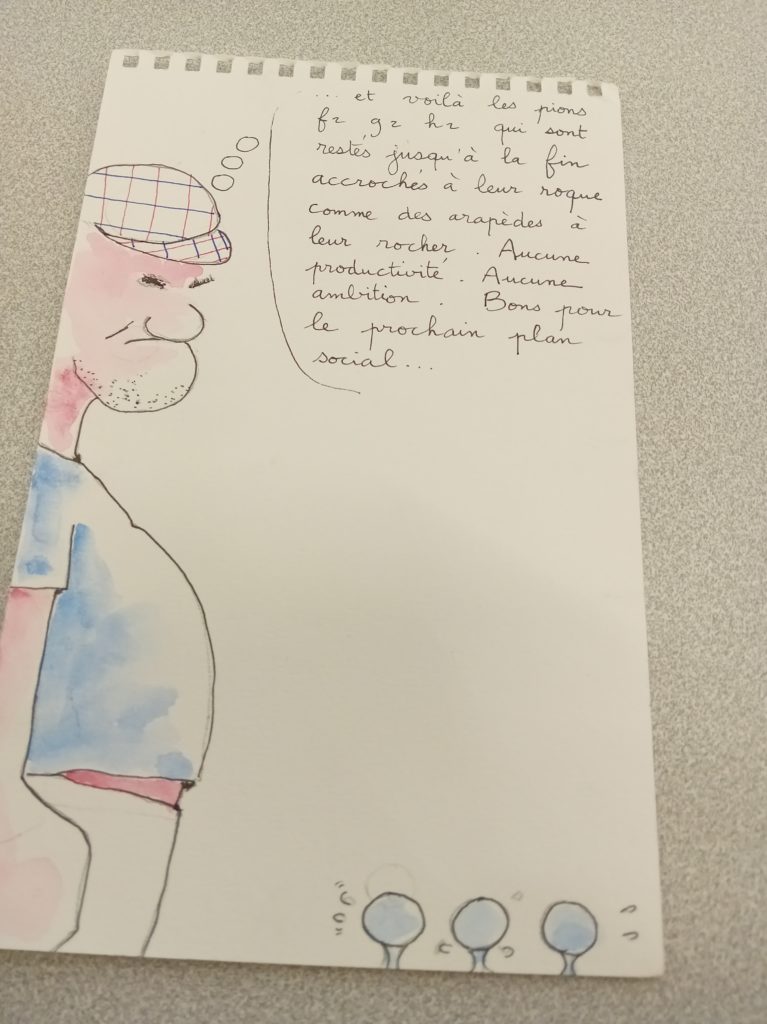 ... et voilà les pions
f2 g2 h2 qui sont
restés jusqu'à la fin
accrochés à leur roque
comme des arapèdes à
leur rocher. Aucune
productivité. Aucune
ambition. Bons pour
le prochain plan
social...